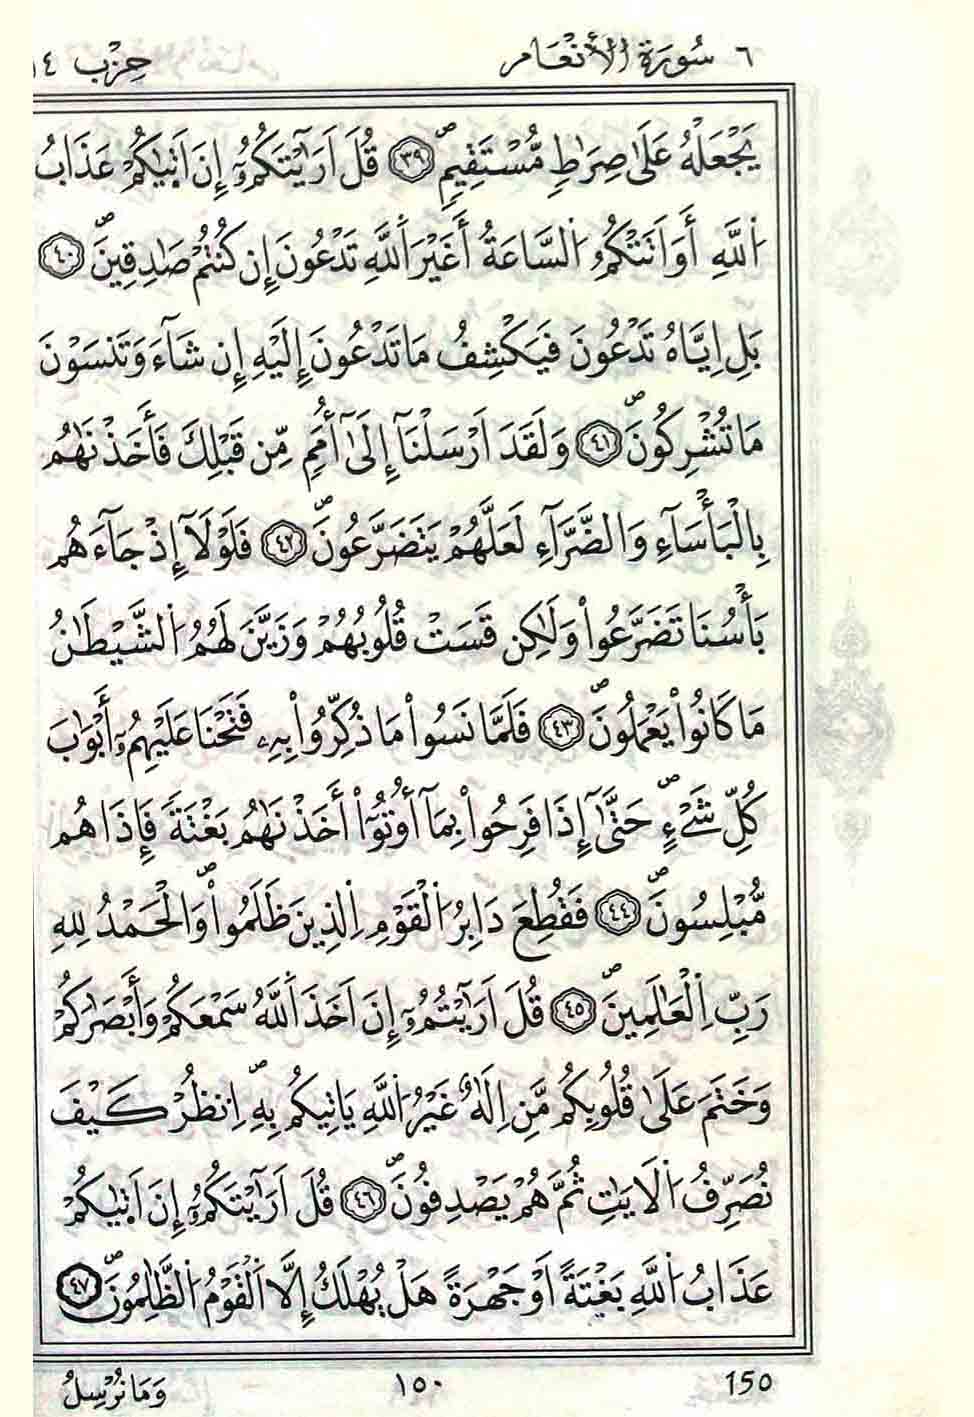 ٦ سُورَةُ الأَنْعَامِ حِزْب ١٤
يَجْعَلْهُ عَلَىٰ صِرَٰطٖ مُّسْتَقِيمٖۖ ٣٩ قُلَ اَرَٰٓيْتَكُمُۥٓ إِنَ اَت۪يٰكُمْ عَذَابُ
اُ۬للَّهِ أَوَ اَتَتْكُمُ اُ۬لسَّاعَةُ أَغَيْرَ اَ۬للَّهِ تَدْعُونَ إِن كُنتُمْ صَٰدِقِينَۖ ٤٠
بَلِ اِيَّاهُ تَدْعُونَ فَيَكْشِفُ مَا تَدْعُونَ إِلَيْهِ إِن شَآءَ وَتَنسَوْنَ
مَا تُشْرِكُونَۖ ٤١ وَلَقَدَ اَرْسَلْنَآ إِلَىٰٓ أُمَمٖ مِّن قَبْلِكَ فَأَخَذْنَٰهُم
بِالْبَأْسَآءِ وَالضَّرَّآءِ لَعَلَّهُمْ يَتَضَرَّعُونَۖ ٤٢ فَلَوْلَآ إِذْ جَآءَهُم
بَأْسُنَا تَضَرَّعُواْ وَلَٰكِن قَسَتْ قُلُوبُهُمْ وَزَيَّنَ لَهُمُ اُ۬لشَّيْطَٰنُ
مَا كَانُواْ يَعْمَلُونَۖ ٤٣ فَلَمَّا نَسُواْ مَا ذُكِّرُواْ بِهِۦ فَتَحْنَا عَلَيْهِمُۥٓ أَبْوَٰبَ
كُلِّ شَےْءٍۖ حَتَّىٰٓ إِذَا فَرِحُواْ بِمَآ أُوتُوٓاْ أَخَذْنَٰهُم بَغْتَةٗ فَإِذَا هُم
مُّبْلِسُونَۖ ٤٤ فَقُطِعَ دَابِرُ اُ۬لْقَوْمِ اِ۬لذِينَ ظَلَمُواْۖ وَالْحَمْدُ لِلهِ
رَبِّ اِ۬لْعَٰلَمِينَۖ ٤٥ قُلَ اَرَٰٓيْتُمُۥٓ إِنَ اَخَذَ اَ۬للَّهُ سَمْعَكُمْ وَأَبْصَٰرَكُمْ
وَخَتَمَ عَلَىٰ قُلُوبِكُم مَّنِ اِلَٰهٌ غَيْرُ اُ۬للَّهِ يَاتِيكُم بِهِۖ اِ۟نظُرْ كَيْفَ
نُصَرِّفُ اُ۬لَايَٰتِ ثُمَّ هُمْ يَصْدِفُونَۖ ٤٦ قُلَ اَرَٰٓيْتَكُمُۥٓ إِنَ اَت۪يٰكُمْ
عَذَابُ اُ۬للَّهِ بَغْتَةً اَوْ جَهْرَةً هَلْ يُهْلَكُ إِلَّا اَ۬لْقَوْمُ اُ۬لظَّٰلِمُونَۖ ٤٧
155 ١٥٠ وَمَا نُرْسِلُ